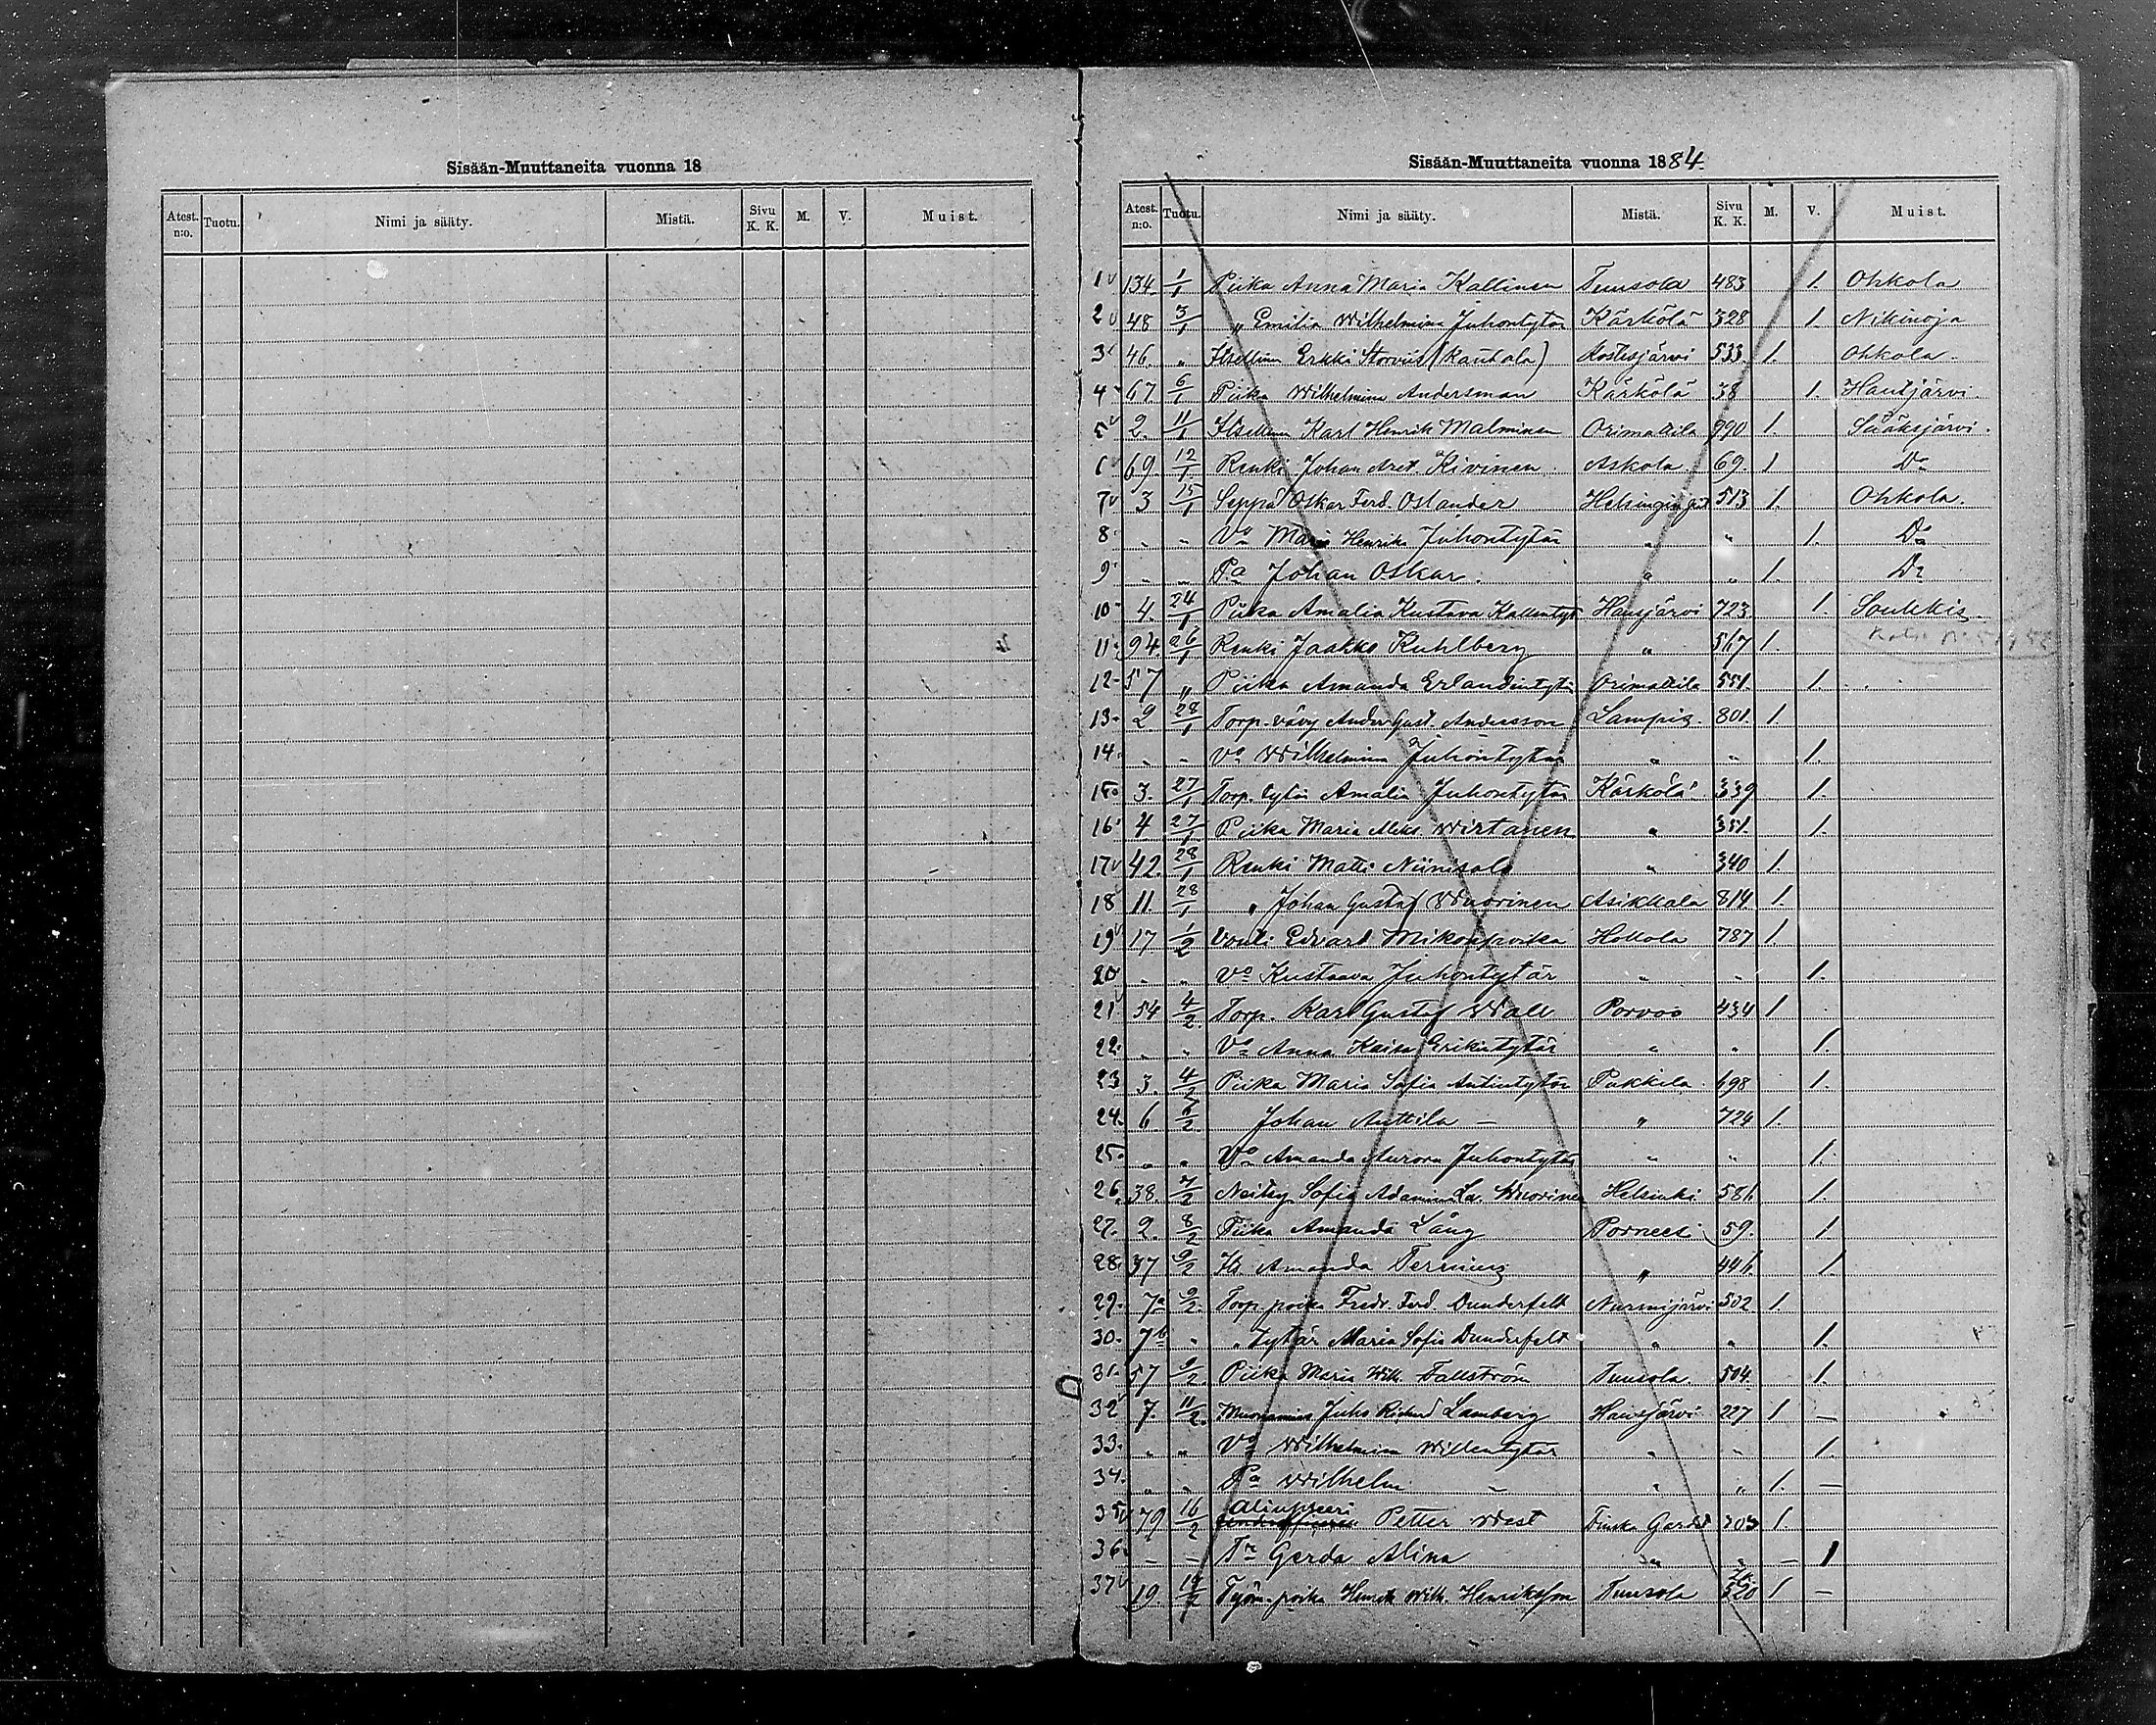 Sisään-Muuttaneita vuonna 18
Atest. n:o. Tuotu. Nimi ja sääty. Mistä. Sivu K. K. M. V. Muist.
Sisään-Muuttaneita vuonna 1884.
Atest. n:o. Tuotu. Nimi ja sääty. Mistä. Sivu K. K. M. V. Muist.
1 134. 1/1 Piika Anna Maria Kallinen Tuusola 483 1. Ohkola
2 48 3/1 „ Emilia Wilhelmina Juhontytär Kärkölä 328 1. Nikinoja
3 46. „ Itsellinen Erkki (Kautala) 533 1. Ohkola.
4 67 6/1 Piika Wilhelmina Andersman Kärkölä 38 1. Hautjärvi.
5 2. 11/1 Itsellinen Karl Henrik Malminen Orimattila 990 1. Sääksjärvi.
6 69. 12/1 Renki Johan Kivinen Askola 69. 1 Do
7 3 15/1 Seppä Oskar Ferd. Oslander Helsingin pit 513 1. Ohkola.
8 „ „ Vo Maria Henrika Juhontytär „ „ 1. Do
9 „ „ Pa Johan Oskar. „ „ 1. Do
10 4. 24/1 Piika Amalia Kustava Hausjärvi 723. 1. Soukkis
11 94. 26/1 Renki Jaakko Kuhlberg „ 567 1.
12 57 „ Piika Amanda Erlandintytär Orimattila 551. 1.
13. 2. 28/1 Torp. vävy Ander Gust. Andersson Lampis. 801. 1.
14. „ „ Vo Wilhelmina Juhontytär „ „ 1.
15. 3. 27/1 Torp. tytär Amalia Juhontytär Kärkölä 339 1.
16 4 27/1 Piika Maria Aleks. Wirtanen „ 351. 1.
17 42. 28/1 Renki Matti Niinisalo „ 340 1.
18 11. 28/1 „ Johan Gustaf Wuorinen Asikkala 814 1.
19 17 1/2 Vouti Edvard Mikonpoika Hollola 787 1.
20 „ „ Vo Kustaava Juhontytär „ „ 1.
21 54 4/2. Torp. Karl Gustaf Wall Porvoo 434 1
22. „ „ Vo Anna Kaisa Erikintytär „ „ 1.
23 3. 4/2 Piika Maria Sofia Antintytär Pukkila 698 1.
24. 6 5/2 Johan Anttila — „ 724 1.
25. „ „ Vo Amanda Aurora Juhontytär „ „ 1.
26. 38. 7/2 Neitsy Sofia Wuorinen Helsinki 581. 1.
27. 2. 8/2 Piika Amanda Lång Pornees 59. 1
28. 37 9/2 Its. Amanda „ 446. 1.
29. 7a 9/2. Torp. poika Fredr. Ferd. Dunderfelt Nurmijärvi 502 1.
30. 7b „ „ Tytär Maria Sofia Dunderfelt „ „ 1.
31. 57 9/2. Piika Maria Wilh. Fallström Tuusola 504 1.
32 7. 11/2. Juho Richard Lamberg Hausjärvi 227 1 —
33. „ „ Vo Wilhelmina Willentytär „ „ 1.
34. „ „ Pa Wilhelm „ „ 1. —
35 79 16/2 Aliupseeri Petter West Finska Gardet 203 1.
36. — — Tr Gerda Alina „ „ — 1
37 19. 19/2 Työm. poika Henrik Wilh. Henriksson Tuusola 520 1 —